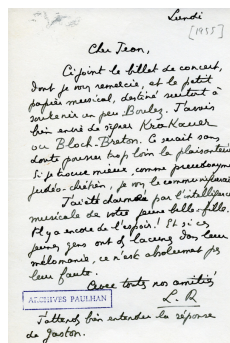 Lundi
[1955]
Cher Jean,
Ci-joint le billet de concert,
dont je vous remercie, et le petit
papier musical, destiné surtout à
soutenir un peu Boulez. J'avais
bien envie de signer Krakauer
ou Bloch-Breton. Ce serait sans
doute pousser trop loin la plaisanterie.
Si je trouve mieux, comme pseudonyme
judéo-chrétien, je vous le communiquerai.
J'ai été charmé par l'intelligence
musicale de votre petite belle-fille.
Il y a encore de l'espoir! Et si ces
jeunes gens ont des lacunes dans leur
mélomanie, ce n'est absolument pas
leur faute.
Avec toutes nos amitiés
L. R
ARCHIVES PAULHAN
J'attends bien entendu la réponse
de Gaston.